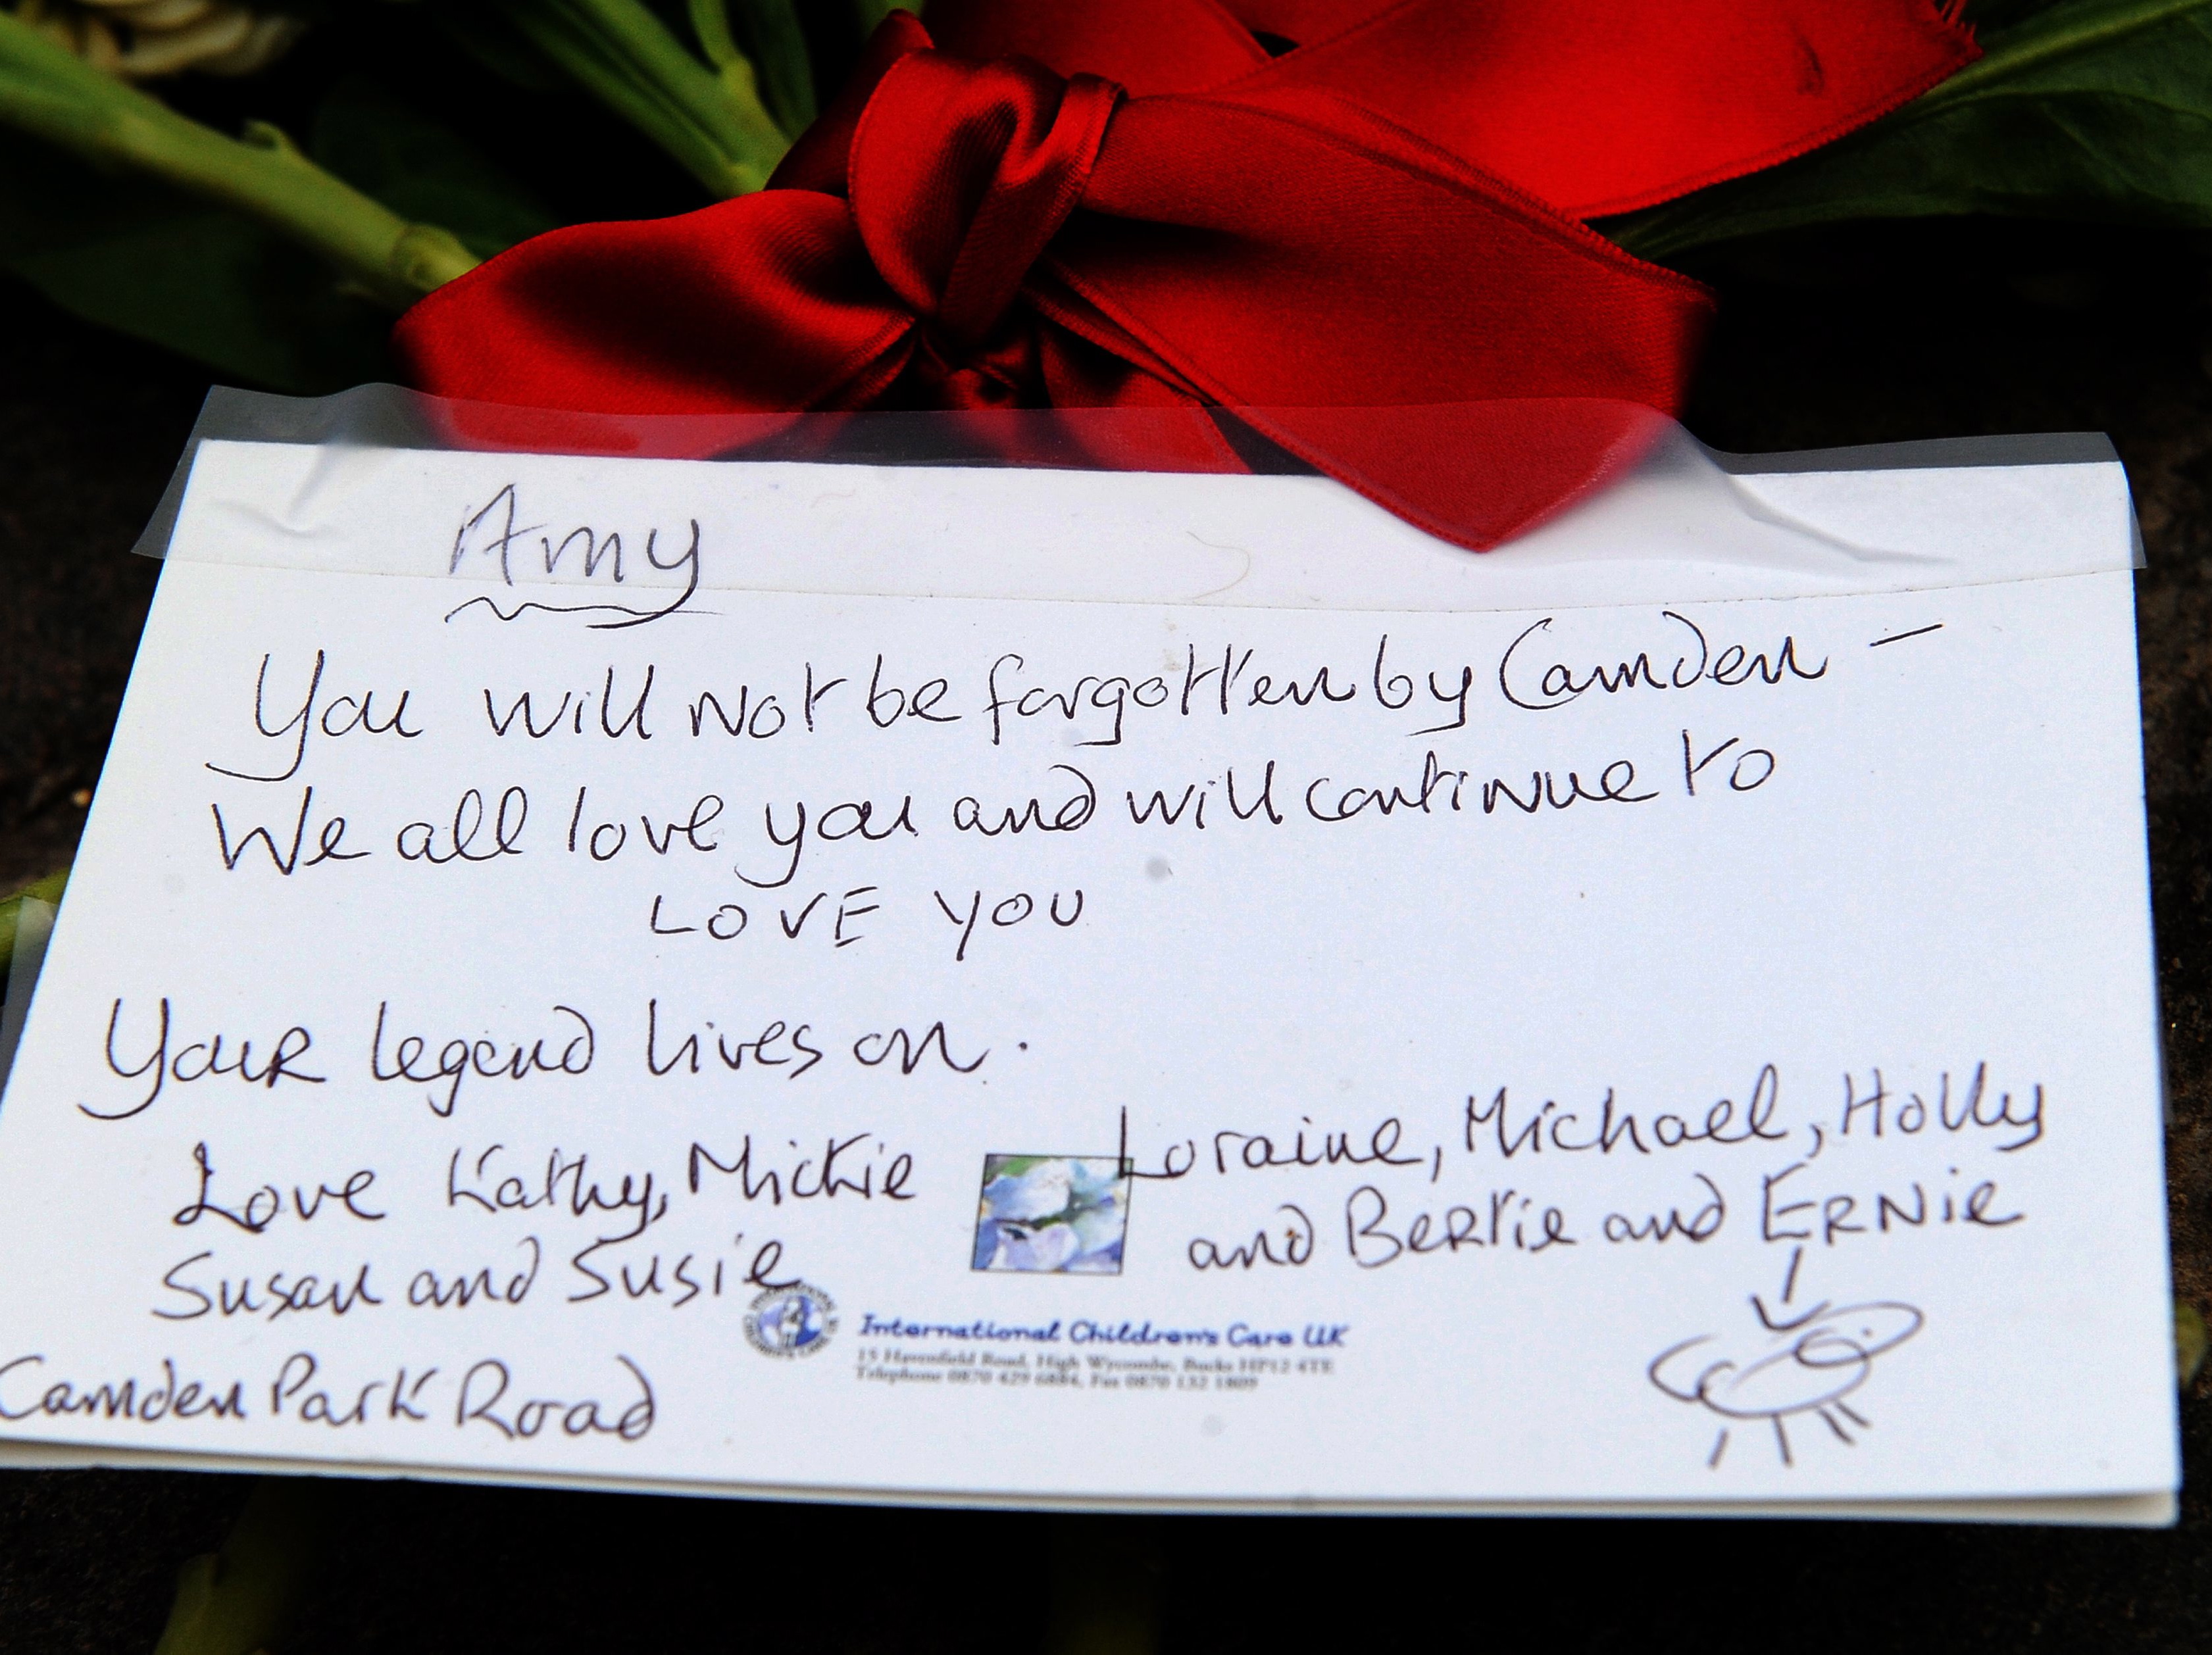 Amy
You will not be forgotten by Camden –
We all love you and will continue to
LOVE YOU
Your legend lives on.
Love Kathy, Mickie
Susan and Susie
Camden Park Road
Loraine, Michael, Holly
and Bertie and ERNie
International Children's Care UK
15 Havenfield Road, High Wycombe, Bucks HP12 4TE
Telephone 0870 429 6884, Fax 0870 132 1809